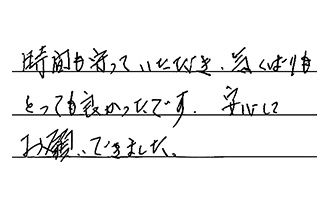 時間も守っていただき、気くばりも
とっても良かったです。安心して
お願いできました。